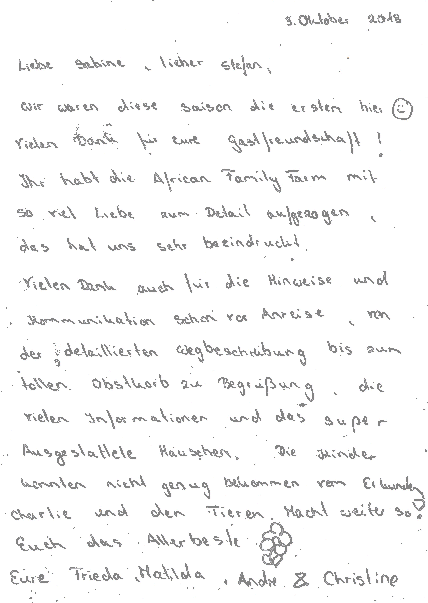 3. Oktober 2018
Liebe Sabine, lieber Stefan,
wir waren diese Saison die ersten hier ☺
Vielen Dank für eure Gastfreundschaft!
Ihr habt die African Family Farm mit
so viel Liebe zum Detail aufgezogen,
das hat uns sehr beeindruckt.
Vielen Dank auch für die Hinweise und
Kommunikation schon vor Anreise, von
der detaillierten Wegbeschreibung bis zum
tollen Obstkorb zu Begrüßung, die
vielen Informationen und das super
Ausgestattete Häuschen. Die Kinder
konnten nicht genug bekommen vom Erkunden,
Charlie und den Tieren. Macht weiter so!
Euch das Allerbeste
Eure Frieda, Matilda, Andre & Christine